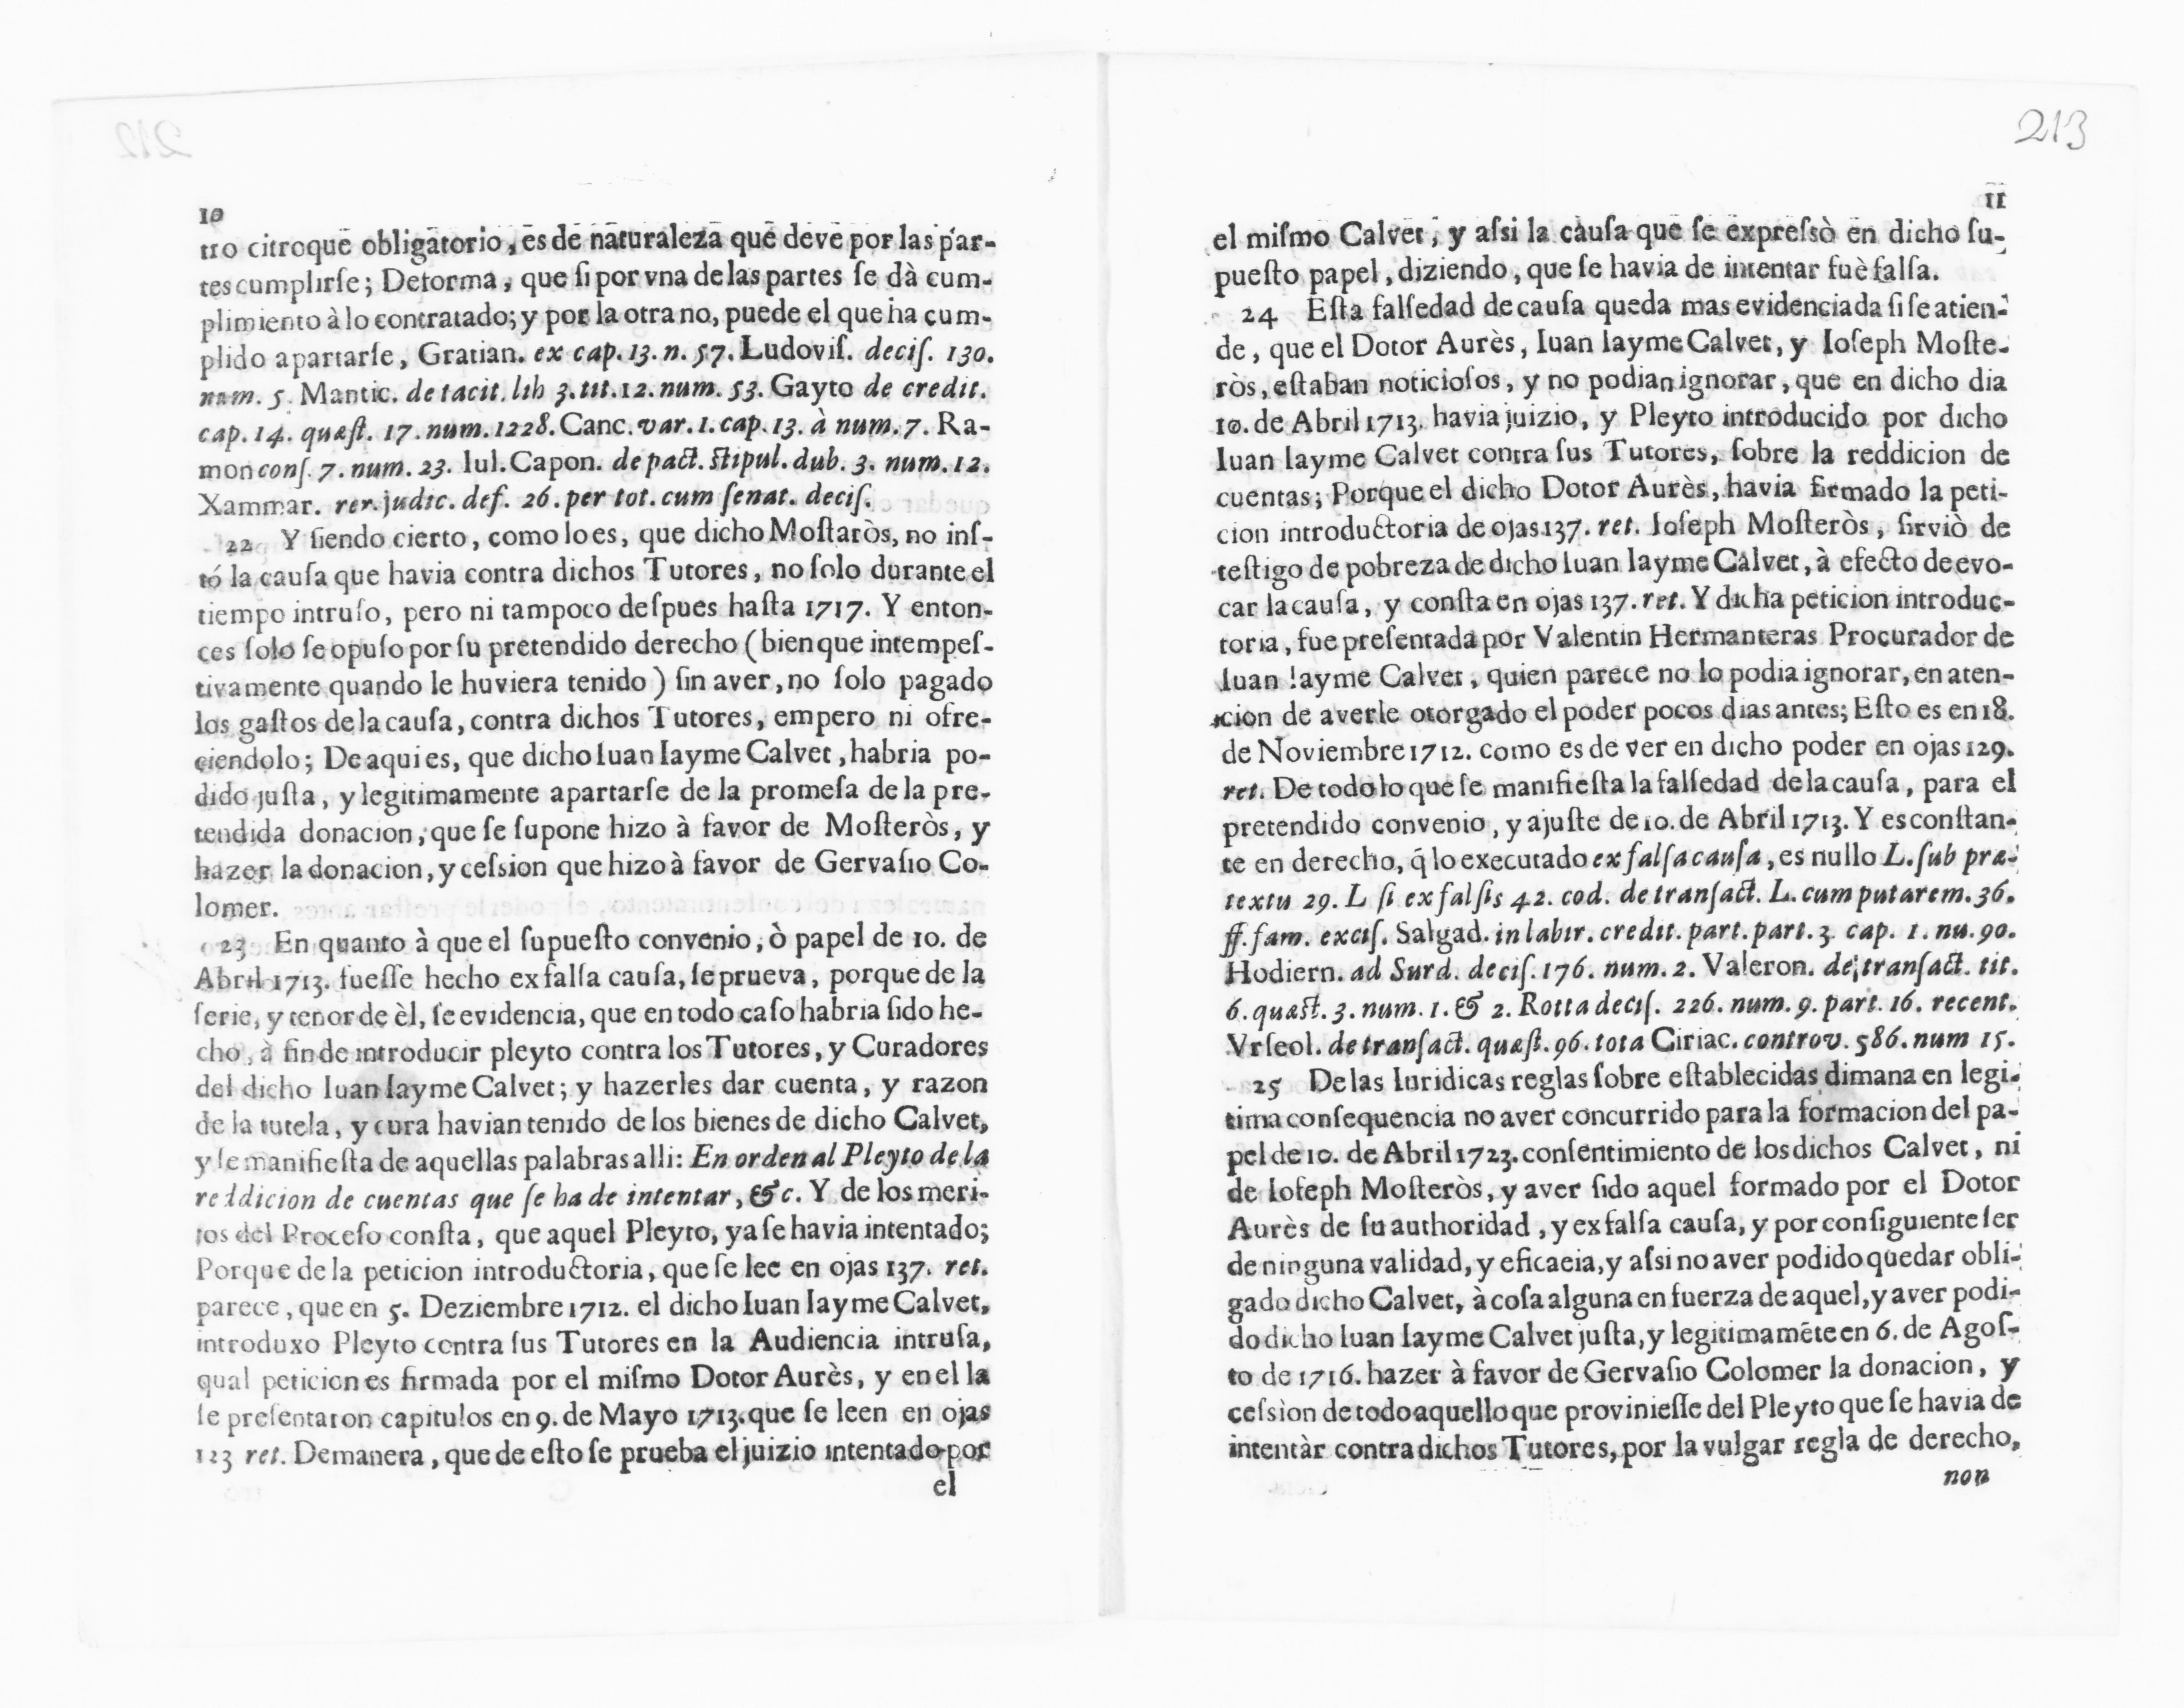 10
tro citroque obligatorio, es de naturaleza que deve por las par-
tes cumplirſe; Deforma, que ſi por vna de las partes ſe dà cum-
plimiento à lo contratado; y por la otra no, puede el que ha cum-
plido apartarſe, Gratian. ex cap. 13. n. 57. Ludoviſ. deciſ. 130.
num. 5. Mantic. de tacit. lib 3. tit. 12. num. 53. Gayto de credit.
cap. 14. quæſt. 17. num. 1228. Canc. var. 1. cap. 13. à num. 7. Ra-
mon conſ. 7. num. 23. Iul. Capon. de pact. ſtipul. dub. 3. num. 12.
Xammar. rer. judic. def. 26. per tot. cum ſenat. deciſ.
22 Y ſiendo cierto, como lo es, que dicho Moſtaròs, no inſ-
tó la cauſa que havia contra dichos Tutores, no ſolo durante el
tiempo intruſo, pero ni tampoco deſpues haſta 1717. Y enton-
ces ſolo ſe opuſo por ſu pretendido derecho (bien que intempeſ-
tivamente quando le huviera tenido) ſin aver, no ſolo pagado
los gaſtos de la cauſa, contra dichos Tutores, empero ni ofre-
ciendolo; De aqui es, que dicho Iuan Iayme Calvet, habria po-
dido juſta, y legitimamente apartarſe de la promeſa de la pre-
tendida donacion, que ſe ſupone hizo à favor de Moſteròs, y
hazer la donacion, y ceſsion que hizo à favor de Gervaſio Co-
lomer.
23 En quanto à que el ſupueſto convenio, ò papel de 10. de
Abril 1713. fueſſe hecho ex falſa cauſa, ſe prueva, porque de la
ſerie, y tenor de èl, ſe evidencia, que en todo caſo habria ſido he-
cho, à fin de introducir pleyto contra los Tutores, y Curadores
del dicho Iuan Iayme Calvet; y hazerles dar cuenta, y razon
de la tutela, y cura havian tenido de los bienes de dicho Calvet,
y ſe manifieſta de aquellas palabras alli: En orden al Pleyto de la
reddicion de cuentas que ſe ha de intentar, &c. Y de los meri-
tos del Proceſo conſta, que aquel Pleyto, ya ſe havia intentado;
Porque de la peticion introductoria, que ſe lee en ojas 137. ret.
parece, que en 5. Deziembre 1712. el dicho Iuan Iayme Calvet,
introduxo Pleyto contra ſus Tutores en la Audiencia intruſa,
qual peticion es firmada por el miſmo Dotor Aurès, y en el la
ſe preſentaron capitulos en 9. de Mayo 1713. que ſe leen en ojas
123 ret. Demanera, que de eſto ſe prueba el juizio intentado por
el
213
11
el miſmo Calvet, y aſsi la cauſa que ſe expreſsò en dicho ſu-
pueſto papel, diziendo, que ſe havia de intentar fuè falſa.
24 Eſta falſedad de cauſa queda mas evidenciada ſi ſe atien-
de, que el Dotor Aurès, Iuan Iayme Calvet, y Ioſeph Moſte-
ròs, eſtaban noticioſos, y no podian ignorar, que en dicho dia
10. de Abril 1713. havia juizio, y Pleyto introducido por dicho
Iuan Iayme Calvet contra ſus Tutores, ſobre la reddicion de
cuentas; Porque el dicho Dotor Aurès, havia firmado la peti-
cion introductoria de ojas 137. ret. Ioſeph Moſteròs, ſirviò de
teſtigo de pobreza de dicho Iuan Iayme Calvet, à efecto de evo-
car la cauſa, y conſta en ojas 137. ret. Y dicha peticion introduc-
toria, fue preſentada por Valentin Hermanteras Procurador de
Iuan Iayme Calvet, quien parece no lo podia ignorar, en aten-
cion de averle otorgado el poder pocos dias antes; Eſto es en 18.
de Noviembre 1712. como es de ver en dicho poder en ojas 129.
ret. De todo lo que ſe manifieſta la falſedad de la cauſa, para el
pretendido convenio, y ajuſte de 10. de Abril 1713. Y es conſtan-
te en derecho, q̃ lo executado ex falſa cauſa, es nullo L. ſub præ-
textu 29. L ſi ex falſis 42. cod. de tranſact. L. cum putarem. 36.
ff. fam. exciſ. Salgad. in labir. credit. part. part. 3. cap. 1. nu. 90.
Hodiern. ad Surd. deciſ. 176. num. 2. Valeron. de tranſact. tit.
6. quæſt. 3. num. 1. & 2. Rotta deciſ. 226. num. 9. part. 16. recent.
Vrſeol. de tranſact. quæſt. 96. tota Ciriac. controv. 586. num 15.
25 De las Iuridicas reglas ſobre eſtablecidas dimana en legi-
tima conſequencia no aver concurrido para la formacion del pa-
pel de 10. de Abril 1723. conſentimiento de los dichos Calvet, ni
de Ioſeph Moſteròs, y aver ſido aquel formado por el Dotor
Aurès de ſu authoridad, y ex falſa cauſa, y por conſiguiente ſer
de ninguna validad, y eficaeia, y aſsi no aver podido quedar obli-
gado dicho Calvet, à coſa alguna en fuerza de aquel, y aver podi-
do dicho Iuan Iayme Calvet juſta, y legitimamẽte en 6. de Agoſ-
to de 1716. hazer à favor de Gervaſio Colomer la donacion, y
ceſsion de todo aquello que provinieſſe del Pleyto que ſe havia de
intentàr contra dichos Tutores, por la vulgar regla de derecho,
non